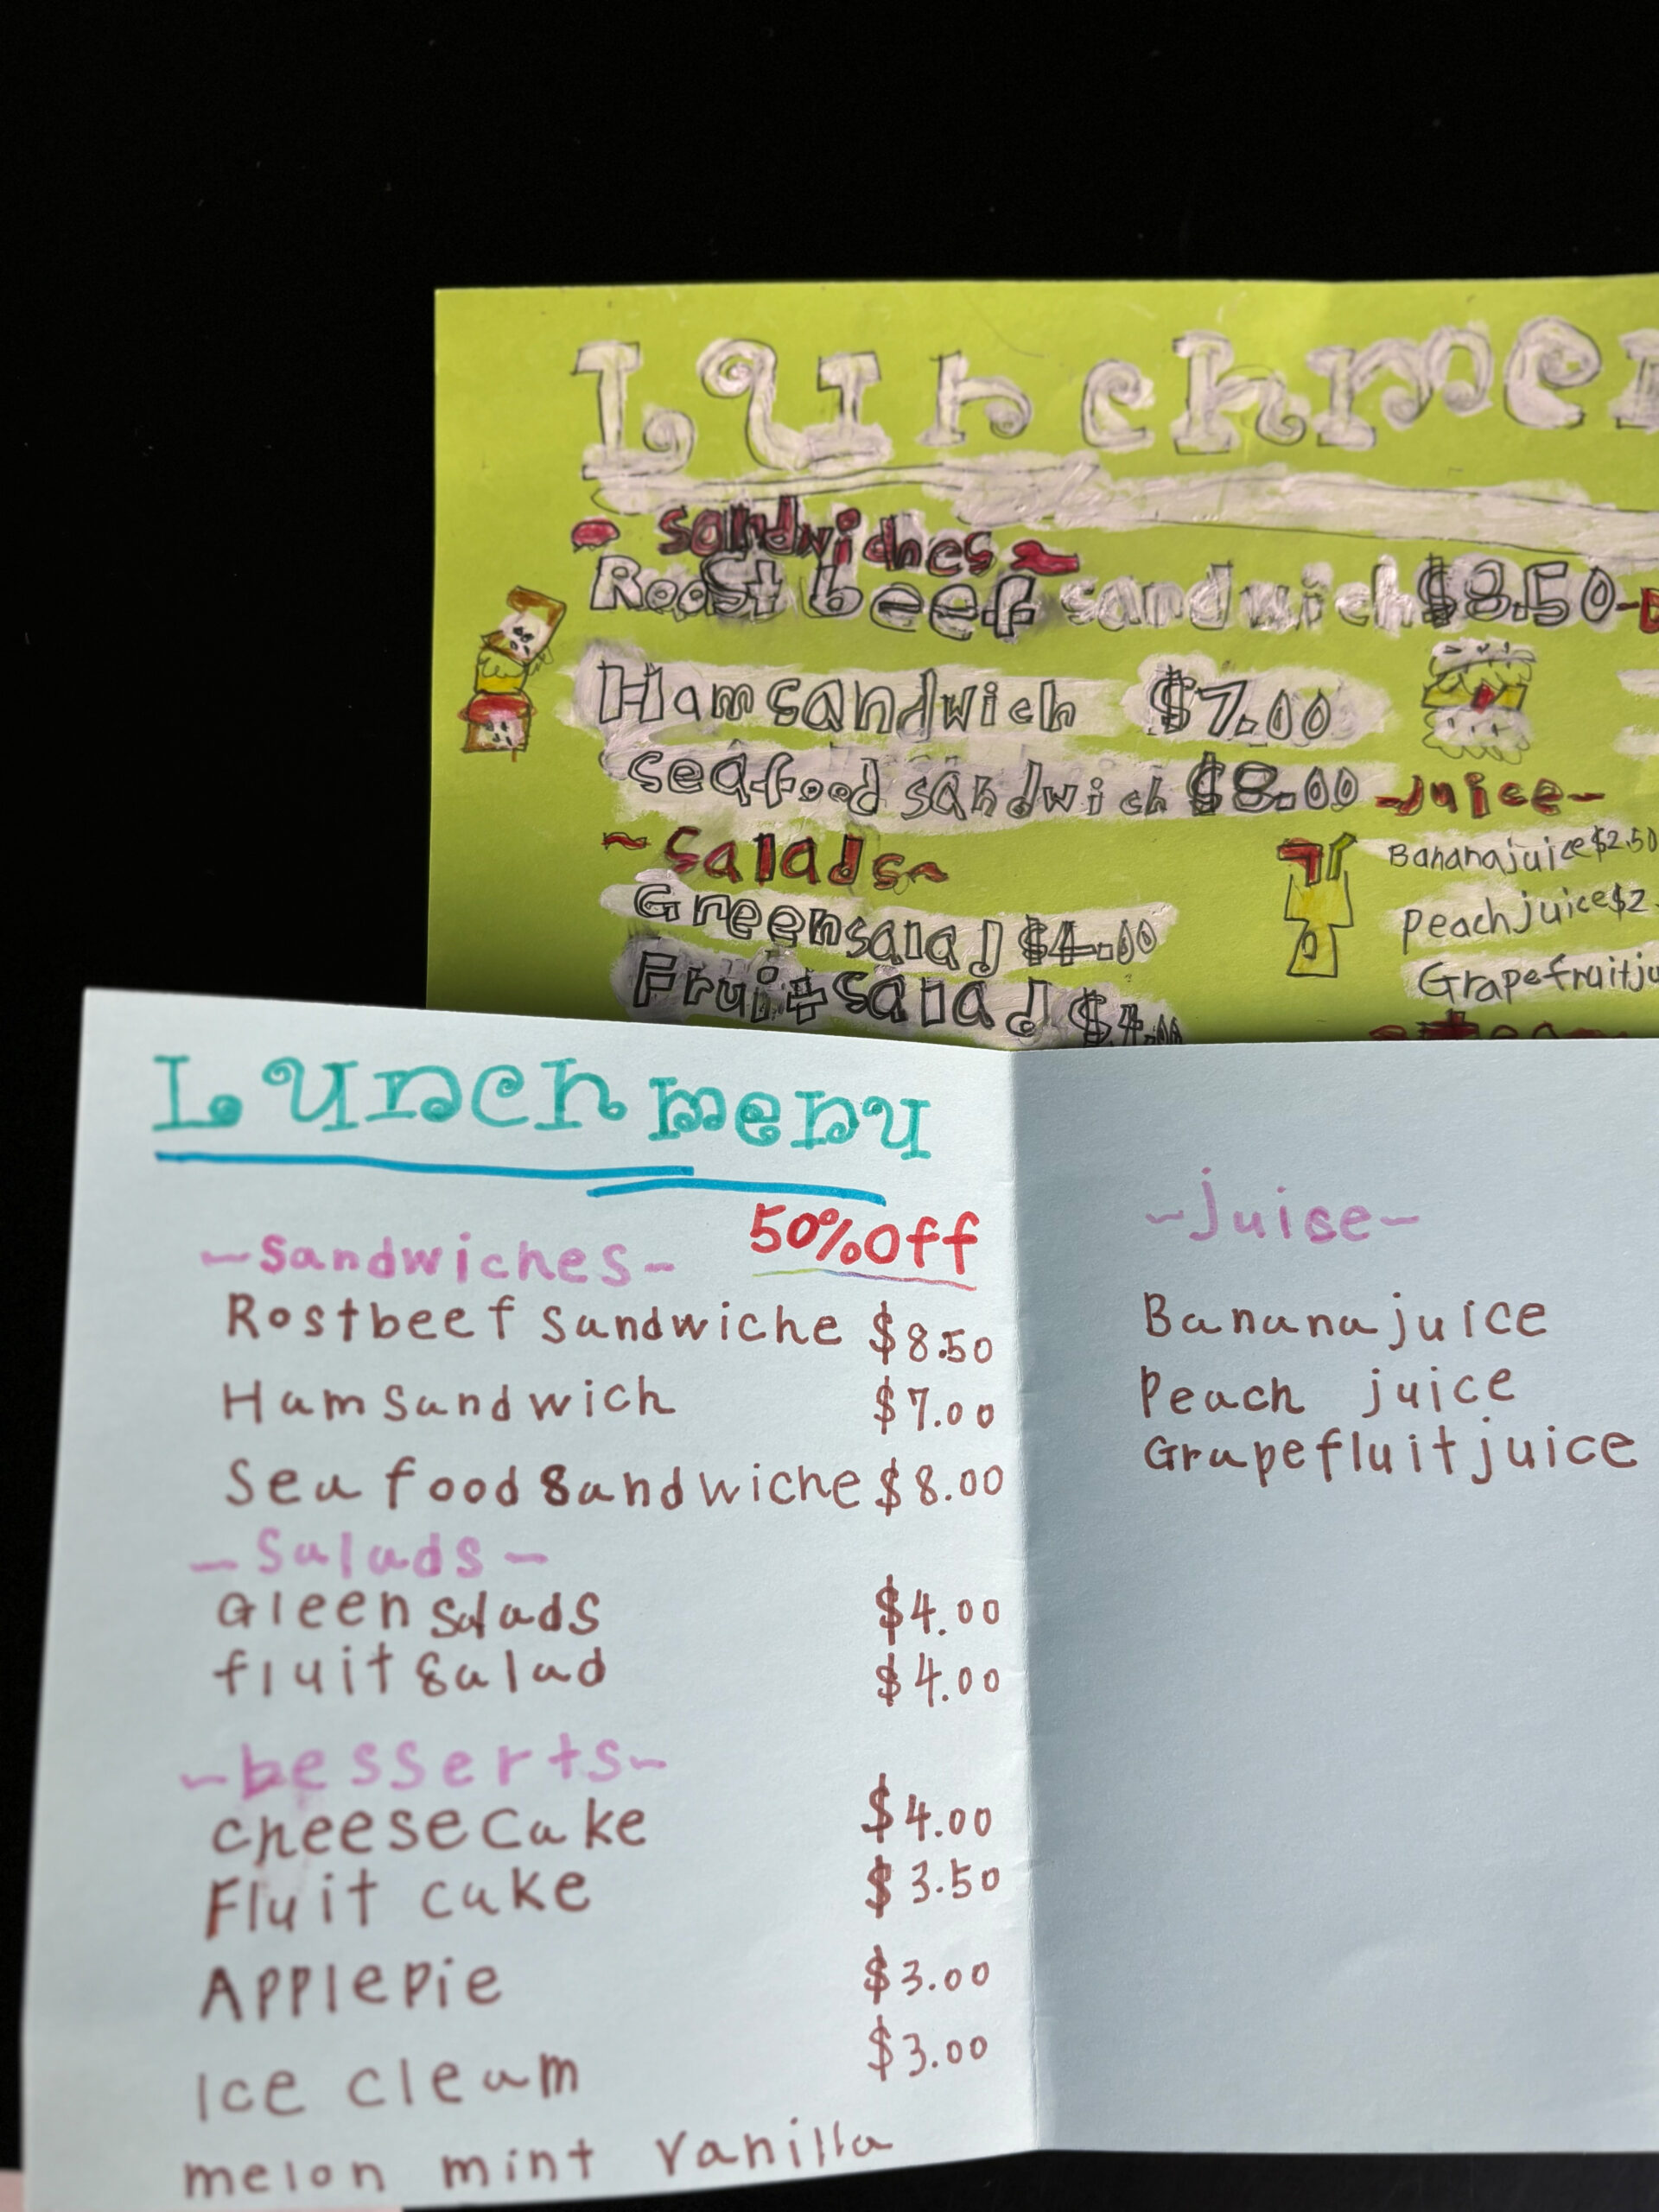 Lunchme
sandwiches ~
Roast beef sandwich $8.50
Ham sandwich $7.00
seafood sandwich $8.00
~ salads ~
Green salad $4.00
Fruit salad $4.00
~Juice~
Banana juice $2.50
Peach juice $2.
Grapefruit ju
Lunch menu
50% Off
~Sandwiches~
Rostbeef sandwiche $8.50
Ham sandwich $7.00
Seafood sandwiche $8.00
~Salads~
Gleen salads $4.00
fluit salad $4.00
~besserts~
cheese Cake $4.00
Fluit cake $3.50
Applepie $3.00
Ice cleam $3.00
melon mint vanilla
~Juise~
Banana juice
Peach juice
Grapefluit juice